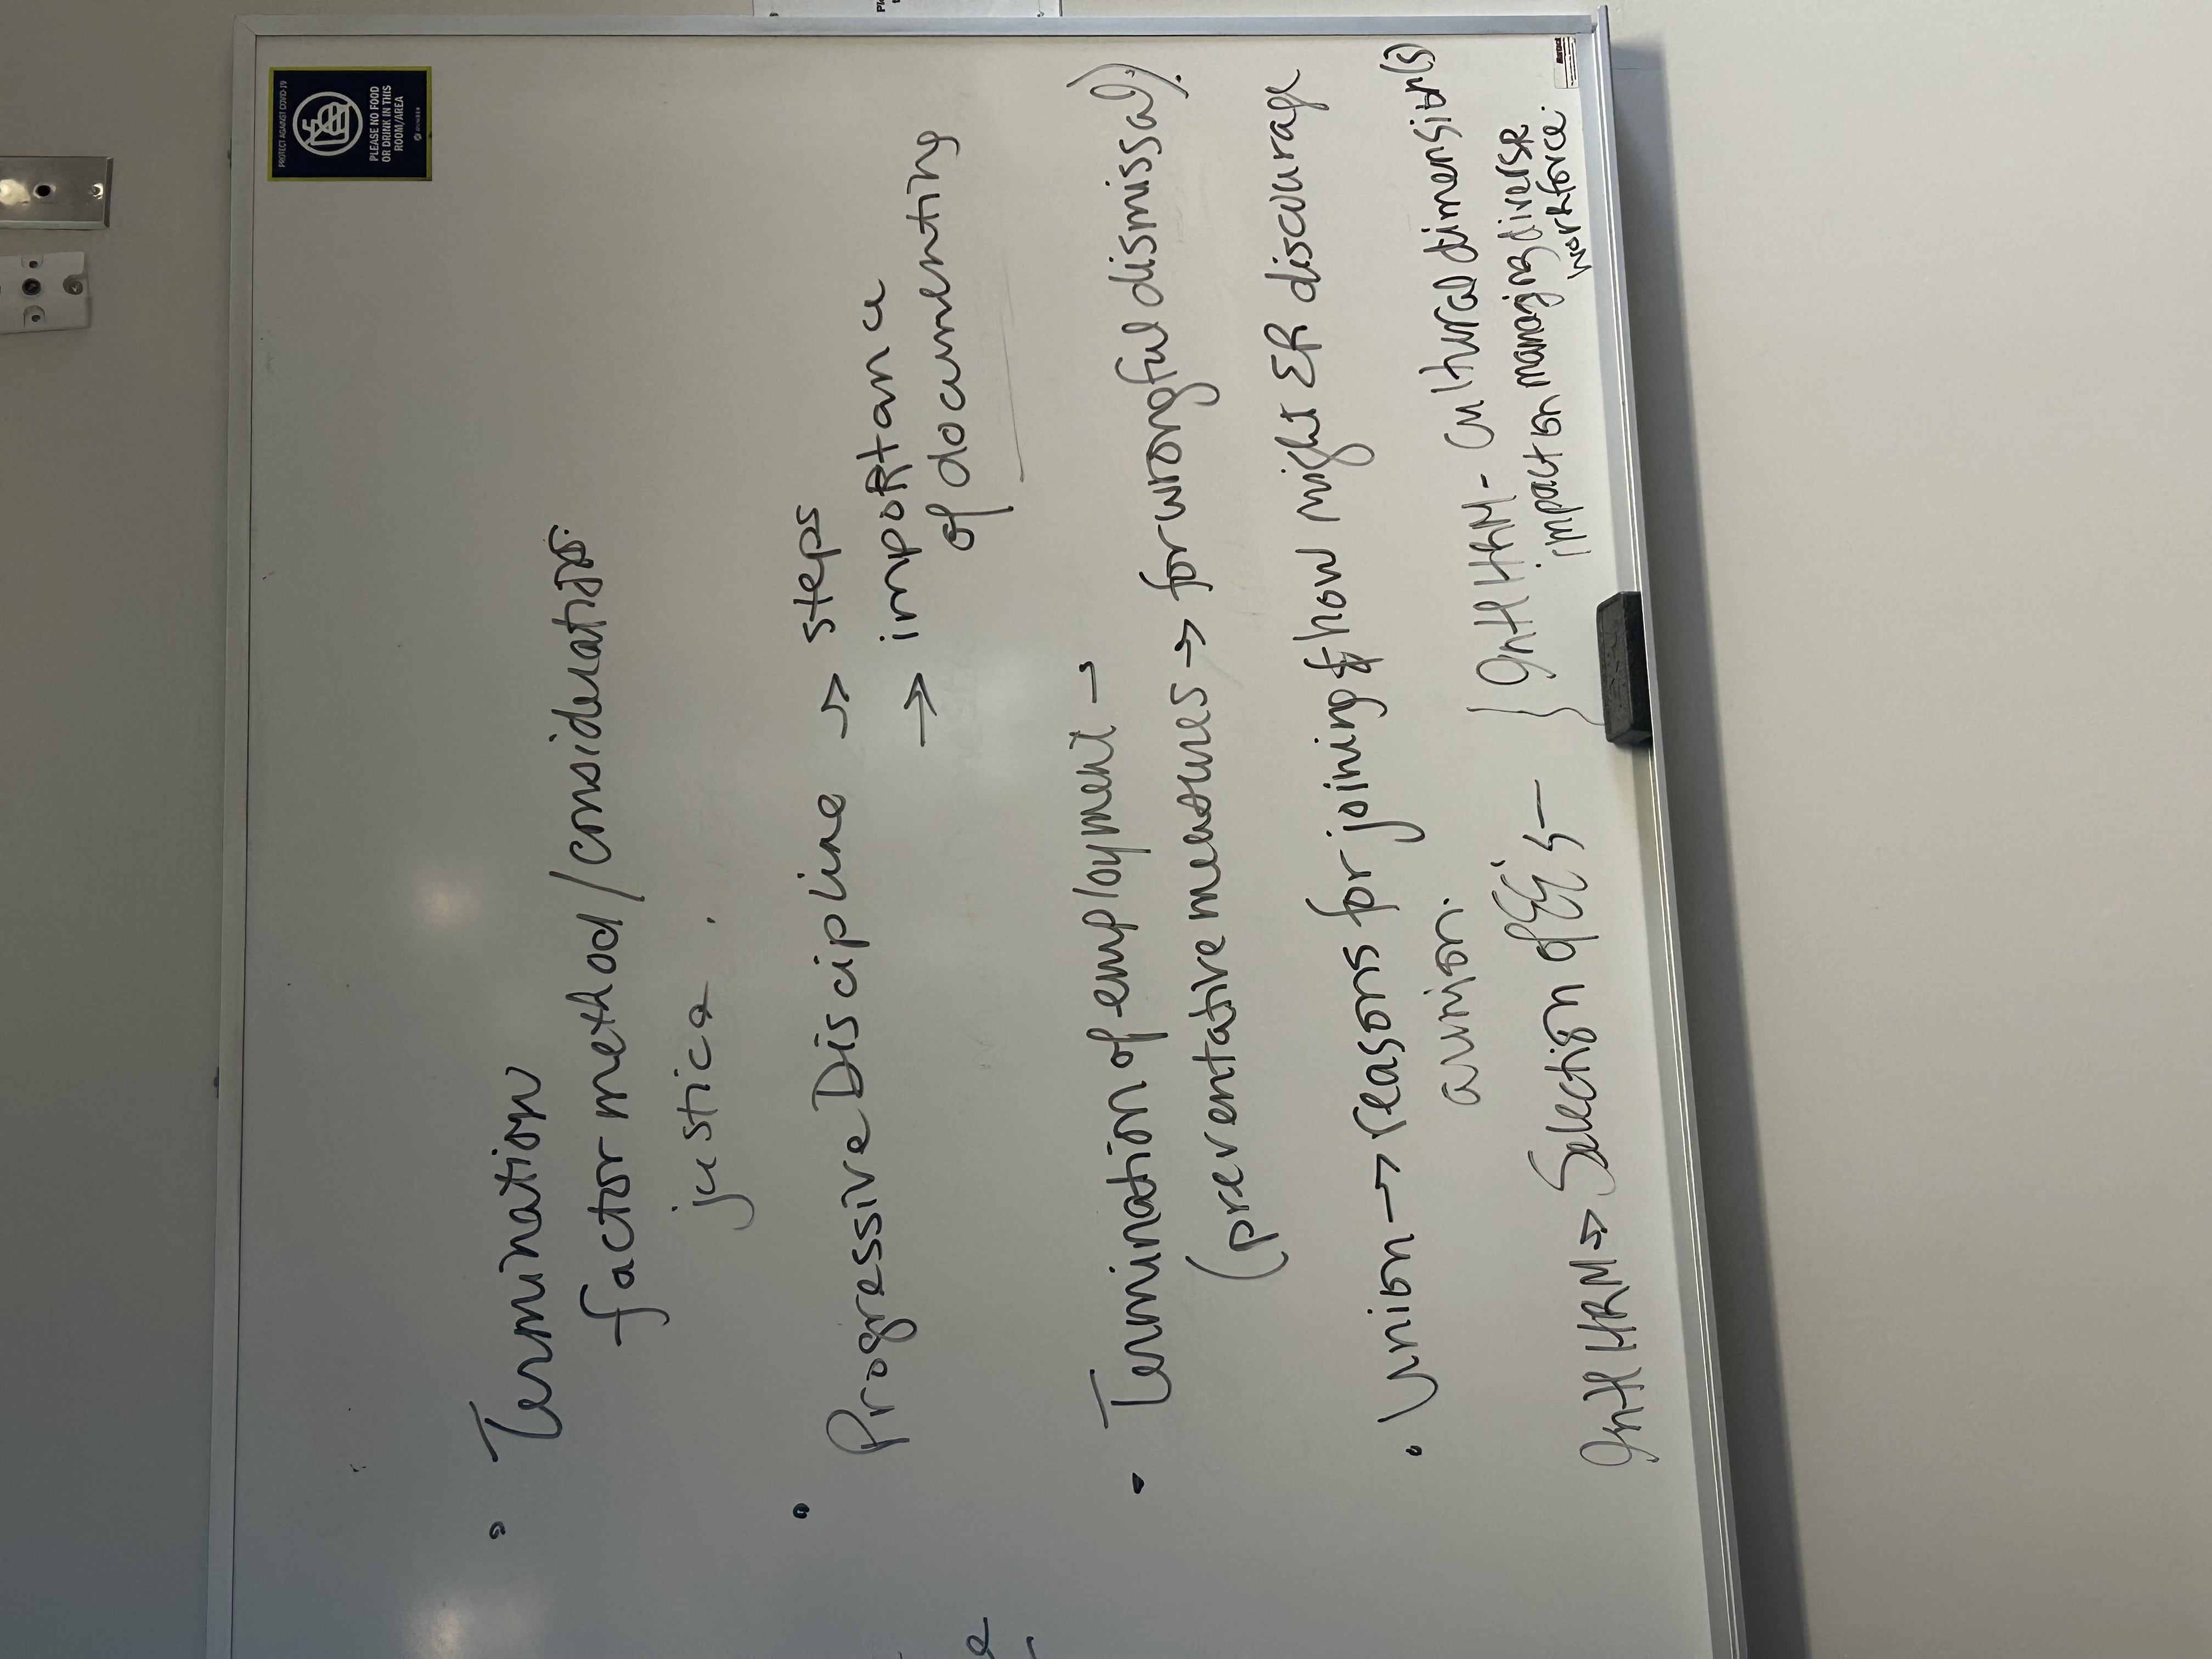 PROTECT AGAINST COVID-19
PLEASE NO FOOD
OR DRINK IN THIS
ROOM/AREA
• Termination
factor method/considerations.
justice.
• Progressive Discipline → steps
→ importance
of documenting
• Termination of employment →
(preventative measures → for wrongful dismissal).
• Union → reasons for joining & how might ER discourage
a union.
Int'l HRM → Selection of EE's –
Int'l HRM – Cultural dimension(s)
impact on managing diverse
workforce.